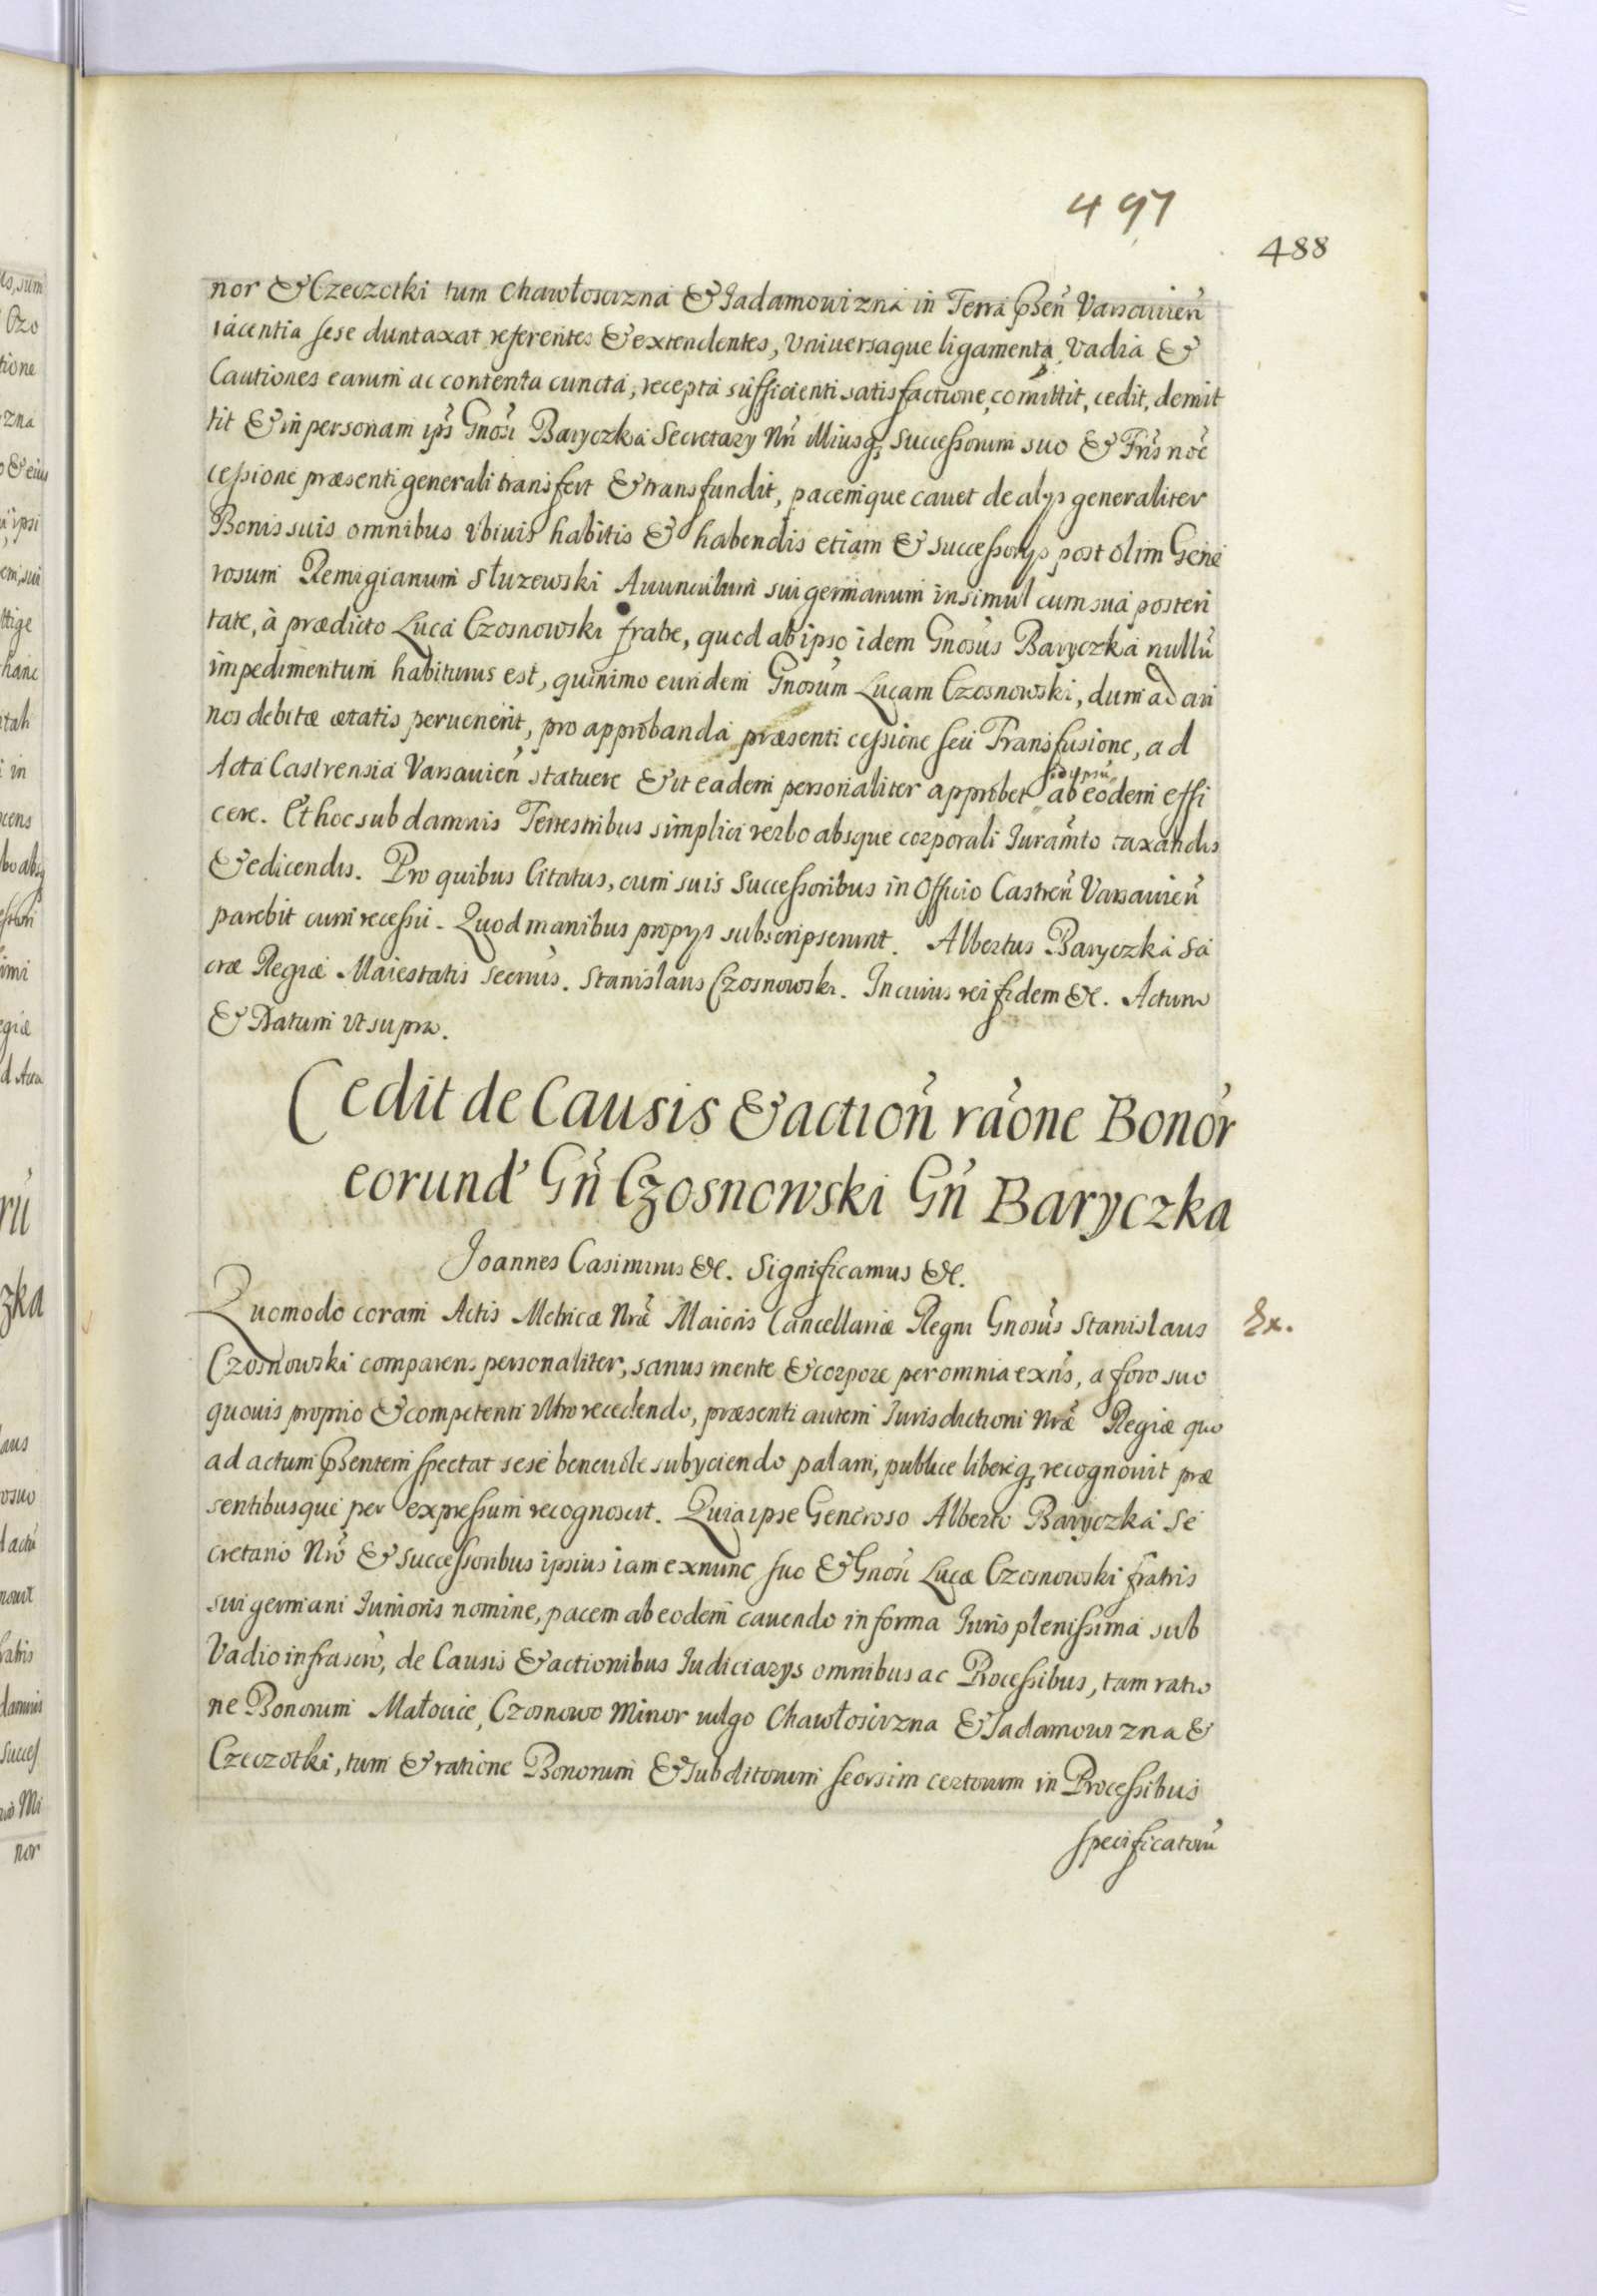 497
488
nor & Czeczotki tum Chawłoscizna & Jadamowizna in Terra pñti Varsavien̄
iacentia sese duntaxat referentes & extendentes, Vniuersaque ligamenta, Vadia &
Cautiones earum ac contenta cuncta, recepta sufficienti satisfactione, com̄ittit, cedit, demit
tit & in personam ip̄s Gnosi Baryczka Secretarÿ Nrī illiusq; Successorum suo & Fris noē
cessione præsenti generali transfert & transfundit, pacemque cauet de alys generaliter
Bonis suis omnibus vbiuis habitis & habendis etiam & successorys post olim Gene
rosum Remigianum Służewski Auunculum sui germanum insimul cum sua posteri
tate, à prædicto Luca Czosnowski fratre, quod ab ipso idem Gnosus Baryczka nullū
impedimentum habiturus est, quinimo eundem Gnosum Lucam Czosnowski, dum ad an
nos debitæ ætatis peruenerit, pro approbanda præsenti cessione seu Transfusione, ad
Acta Castrensia Varsavien̄ statuere & vt eadem personaliter approbet id ipsū ab eodem effi
cere. Et hoc sub damnis Terrestribus simplici verbo absque corporali Juram̄to taxandis
& edicendis. Pro quibus Citatus, cum suis Successoribus in Officio Castren̄ Varsavien̄
parebit cum recessu. Quod manibus propys subscripserunt. Albertus Baryczka Sa
cræ Regiæ Maiestatis Secrius. Stanislaus Czosnowski. In cuius rei fidem &c. Actum
& Datum vt supra.
Cedit de Causis & action̄ raōne Bonor̄
eorund' Gn̄ Czosnowski Gn̄ Baryczka
Joannes Casimirus &c. Significamus &c.
Quomodo coram Actis Metricæ Nræ Maioris Cancellariæ Regni Gnosus Stanislaus
Ex.
Czosnowski comparens personaliter, sanus mente & corpore per omnia exn̄s, a foro suo
quouis proprio & competenti vltro recedendo, præsenti autem Jurisdictioni Nræ Regiæ quo
ad actum pñsentem spectat sese beneuole subyciendo palam, publice libereq; recognouit præ
sentibusque per expressum recognoscit. Quia ipse Generoso Alberto Baryczka Se
cretario Nrō & Successoribus ipsius iam exnunc suo & Gnosi Lucæ Czosnowski fratris
sui germani Junioris nomine, pacem ab eodem cauendo in forma Juris plenissima sub
Vadio infrascrō, de Causis & actionibus Judiciarys omnibus ac Processibus, tam ratio
ne Bonorum Małocice, Czosnowo Minor vulgo Chawłoscizna & Jadamowizna &
Czeczotki, tum & ratione Bonorum & Subditorum seorsim certorum in Processibus
specificatorū